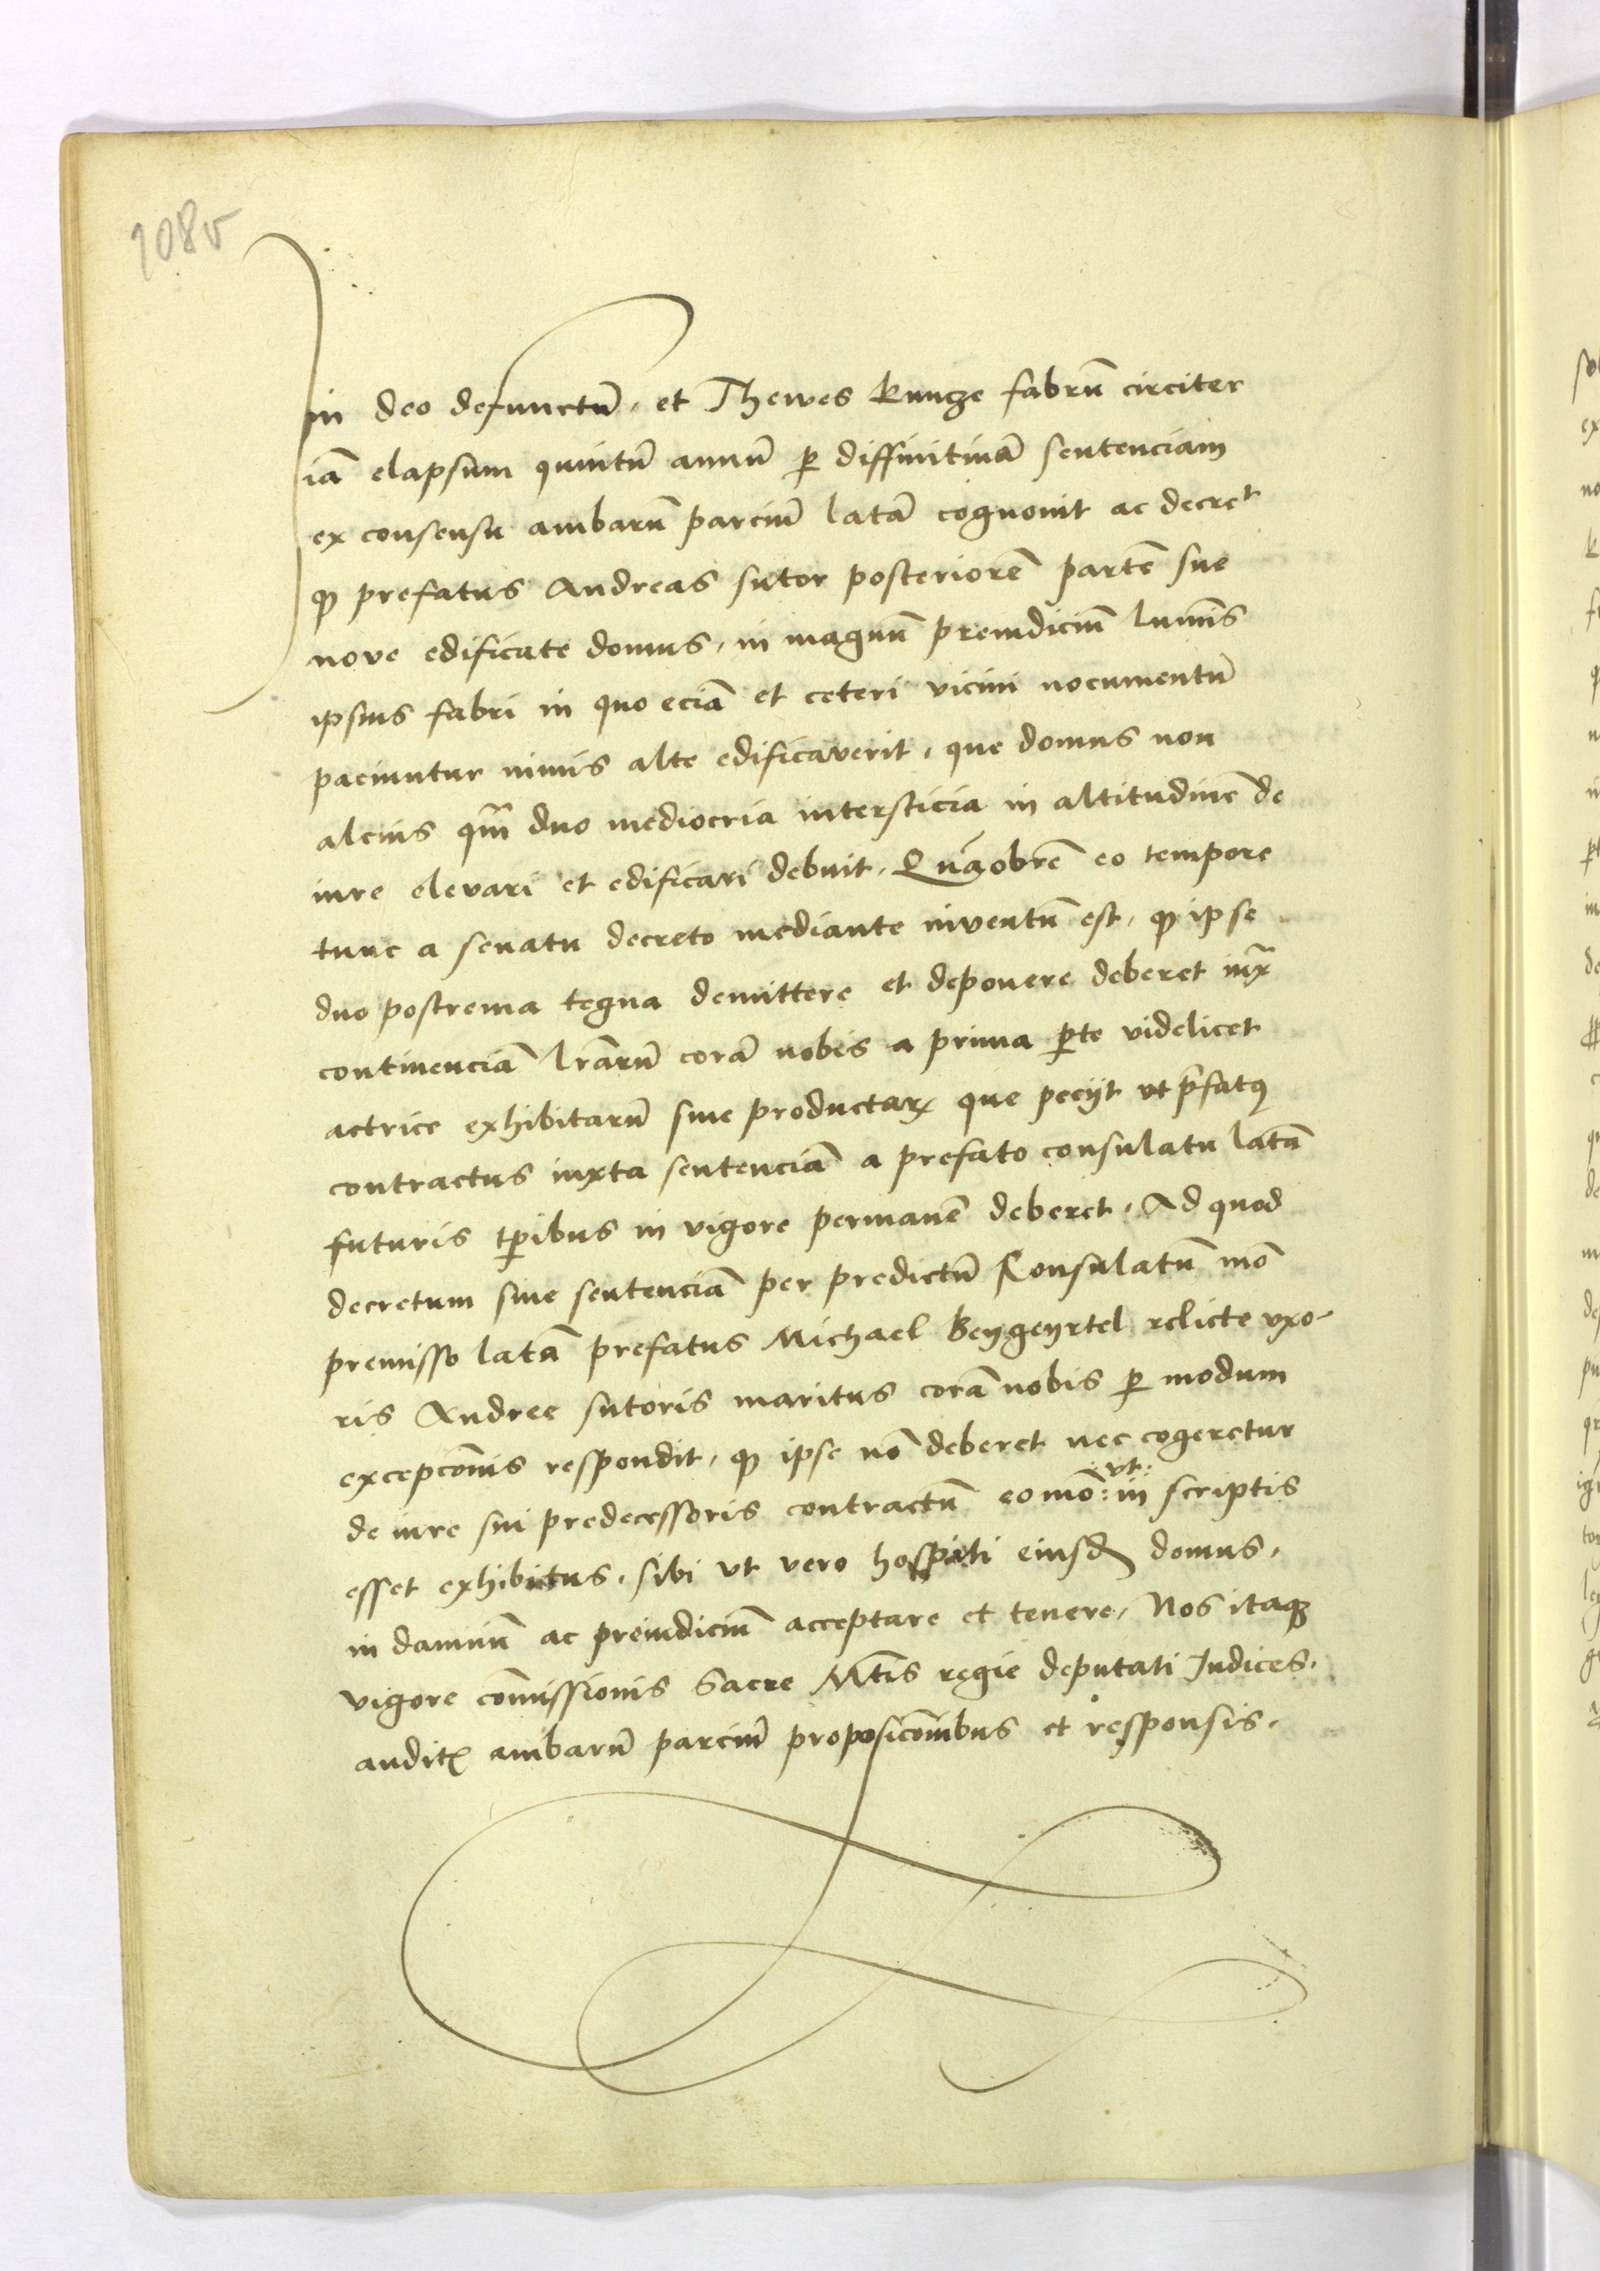 108v
in deo defunctū, et Thewes Kuncze fabrū circiter
iā elapsum quintū annū p diffinitiuā sentenciam
ex consensu ambarū parciū latā cognouit ac decret
q prefatus Andreas sutor posteriorē partē sue
nove edificate domus, in magnū preiudiciū lumīs
ipsius fabri in quo eciā et ceteri vicini nocumentū
paciuntur nimis alte edificaverit, que domus non
alcius qm̄ duo mediocria intersticia in altitudine de
iure elevari et edificari debuit, Quāobrē eo tempore
tunc a senatu decreto mediante inventū est, q ipse
duo postrema tegna demittere et deponere deberet iuxᵃ
continenciā lrārū corā nobis a prima pte videlicet
actrice exhibitarū siue productarꝝ que peciit vt p̄fatꝰ
contractus iuxta sentenciā a prefato consulatu latā
futuris tp̄ibus in vigore permanē deberet, Ad quod
decretum siue sentenciā per predictū Consulatū mō
premisso latā prefatus Michael Beygeyrtel relicte vxo-
ris Andree sutoris maritus corā nobis p modum
excepcōnis respondit, q ipse nō deberet nec cogeretur
de iure sui predecessoris contractū eo mō :vt: in scriptis
esset exhibitus, sibi vt vero hospiti eiusd domus,
in damnū ac preiudiciū acceptare et tenere, Nos itaqꝫ
vigore cōmissionis Sacre Mtis regie deputati Judices,
audit ambarū parciū proposicōnibus et responsis,